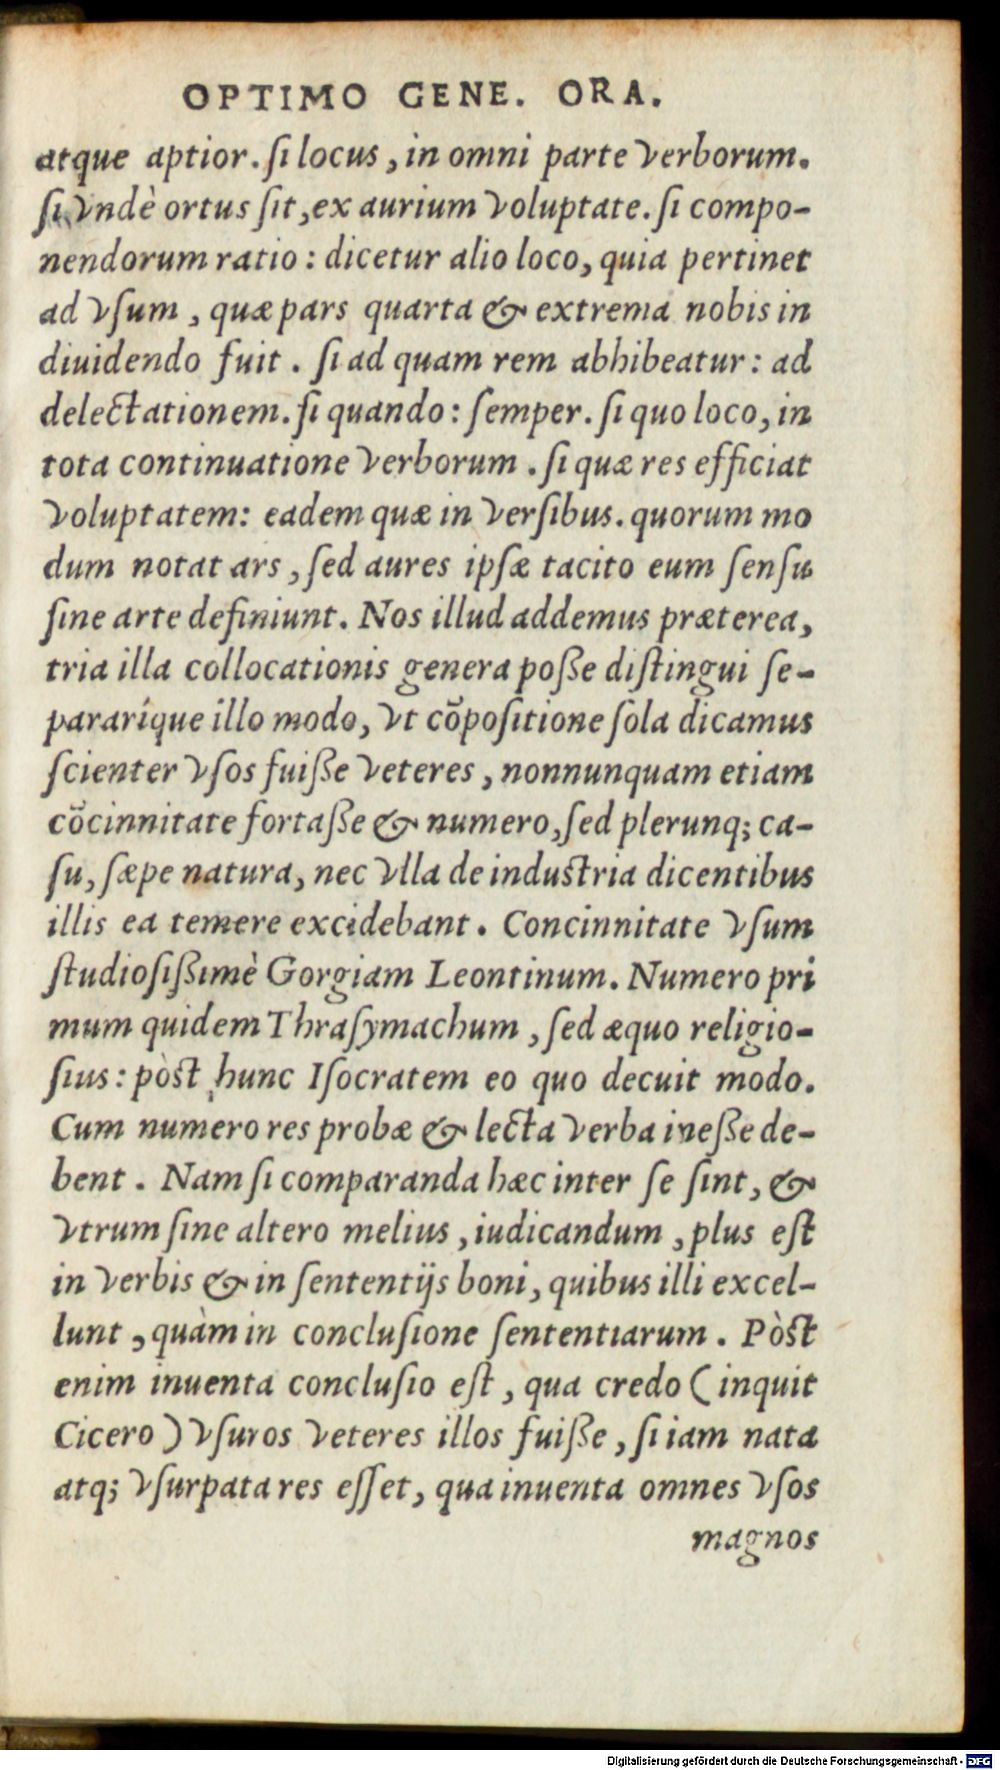 OPTIMO GENE. ORA.
atque aptior. ſi locus, in omni parte verborum.
ſi vndè ortus ſit, ex aurium voluptate. ſi compo-
nendorum ratio: dicetur alio loco, quia pertinet
ad vſum, quæ pars quarta & extrema nobis in
diuidendo fuit. ſi ad quam rem abhibeatur: ad
delectationem. ſi quando: ſemper. ſi quo loco, in
tota continuatione verborum. ſi quæ res efficiat
voluptatem: eadem quæ in verſibus. quorum mo
dum notat ars, ſed aures ipſæ tacito eum ſenſu
ſine arte definiunt. Nos illud addemus præterea,
tria illa collocationis genera poſſe diſtingui ſe-
pararíque illo modo, vt cõpoſitione ſola dicamus
ſcienter vſos fuiſſe veteres, nonnunquam etiam
cõcinnitate fortaſſe & numero, ſed plerunq; ca-
ſu, ſæpe natura, nec vlla de induſtria dicentibus
illis ea temere excidebant. Concinnitate vſum
ſtudioſiſſimè Gorgiam Leontinum. Numero pri
mum quidem Thraſymachum, ſed æquo religio-
ſius: pòſt hunc Iſocratem eo quo decuit modo.
Cum numero res probæ & lecta verba ineſſe de-
bent. Nam ſi comparanda hæc inter ſe ſint, &
vtrum ſine altero melius, iudicandum, plus eſt
in verbis & in ſententijs boni, quibus illi excel-
lunt, quàm in concluſione ſententiarum. Pòſt
enim inuenta concluſio eſt, qua credo (inquit
Cicero) vſuros veteres illos fuiſſe, ſi iam nata
atq; vſurpata res eſſet, qua inuenta omnes vſos
magnos
Digitalisierung gefördert durch die Deutsche Forschungsgemeinschaft - DFG